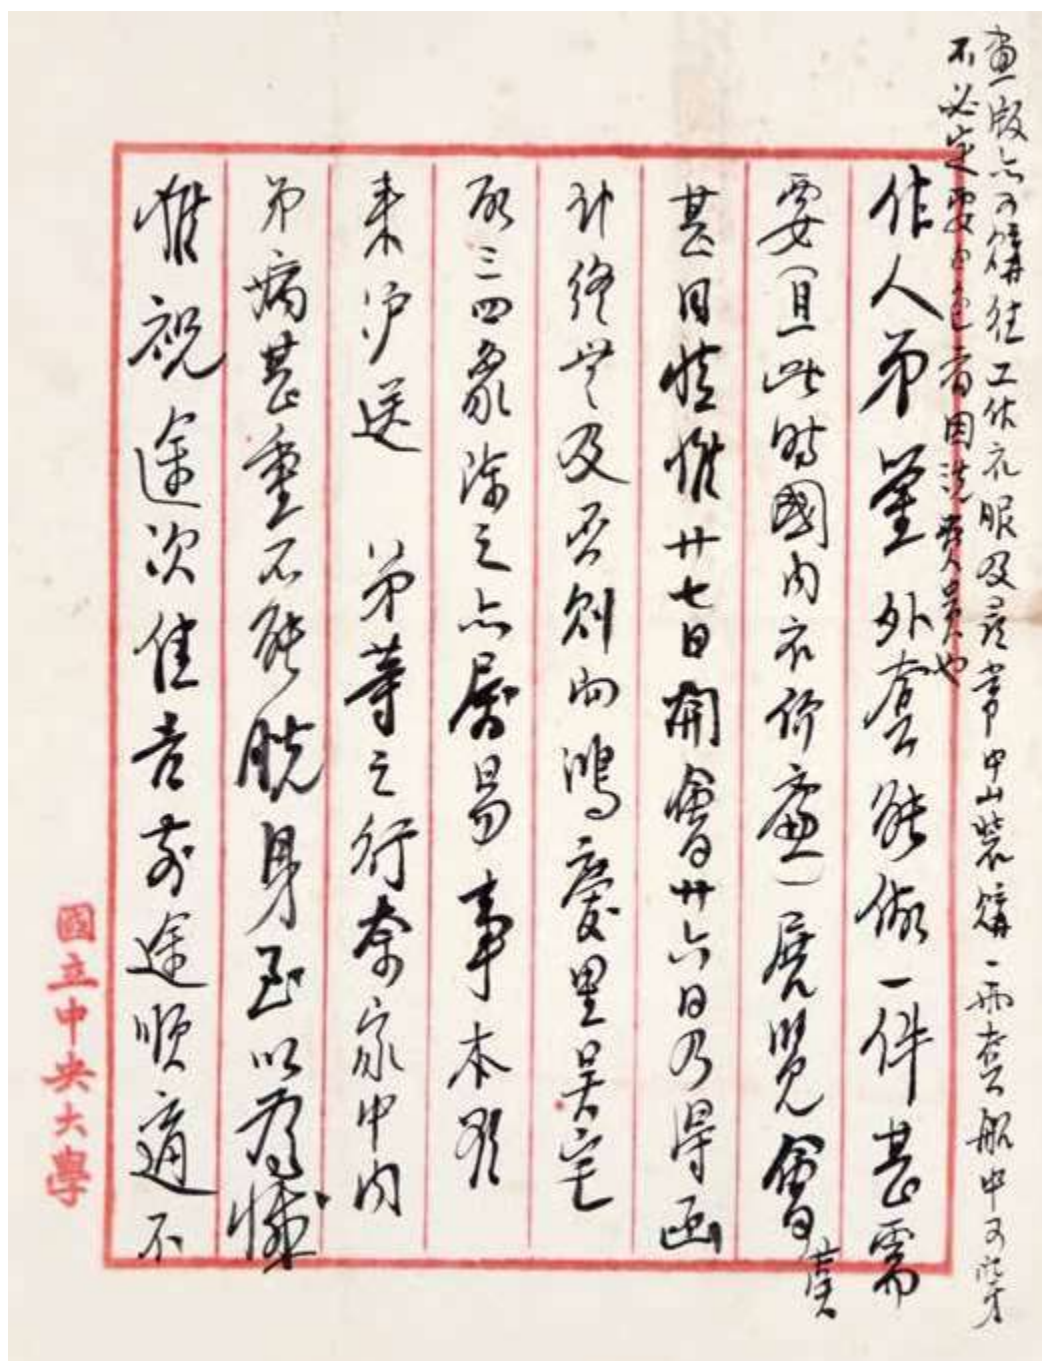 画版亦可購往工作衣服及尋常中山裝購一兩套船中可穿
不必定要白色者因洗費貴也
作人弟鑒外套能做一件甚需
要(且此時國內衣价廉)展覽會
甚目惟廿七日開會廿六日乃得函
计終無及否則向鴻慶里吴宅
取三四象陈之亦屬易事本欲
来沪送 弟等之行奈家中内
弟病甚重不能脱身至以為憾
惟祝途次佳吉前途順適不
國立中央大學